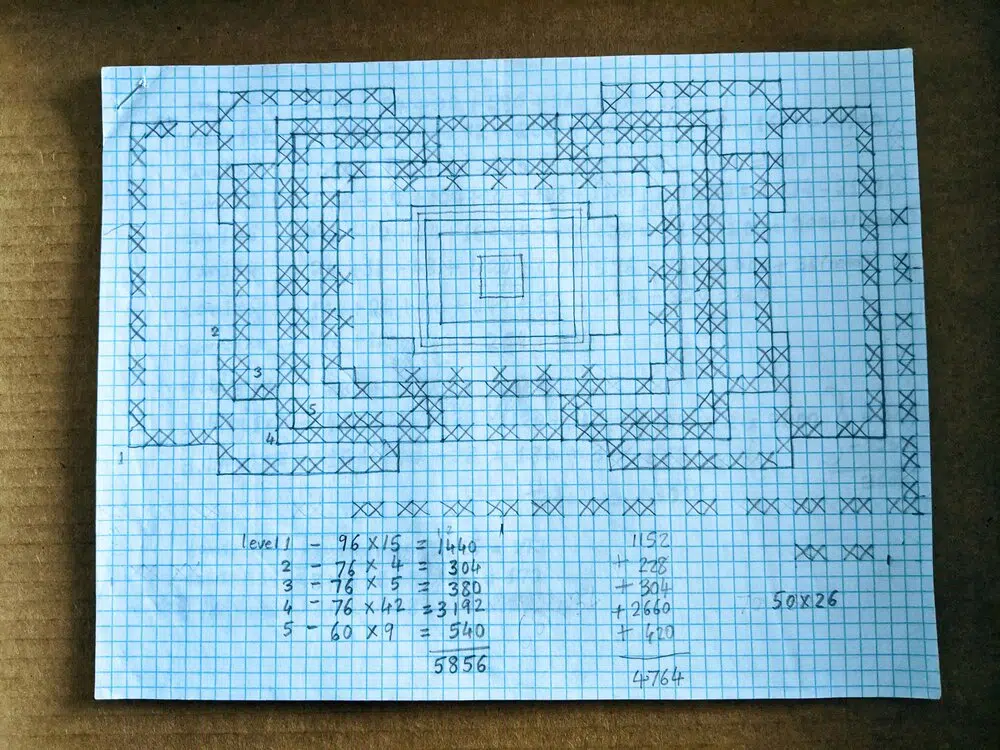 2
3
5
4
1
1
level 1 - 96 × 15 = 1440
2 - 76 × 4 = 304
3 - 76 × 5 = 380
4 - 76 × 42 = 3192
5 - 60 × 9 = 540
5856
1152
+ 228
+ 304
+ 2660
+ 420
4764
50×26